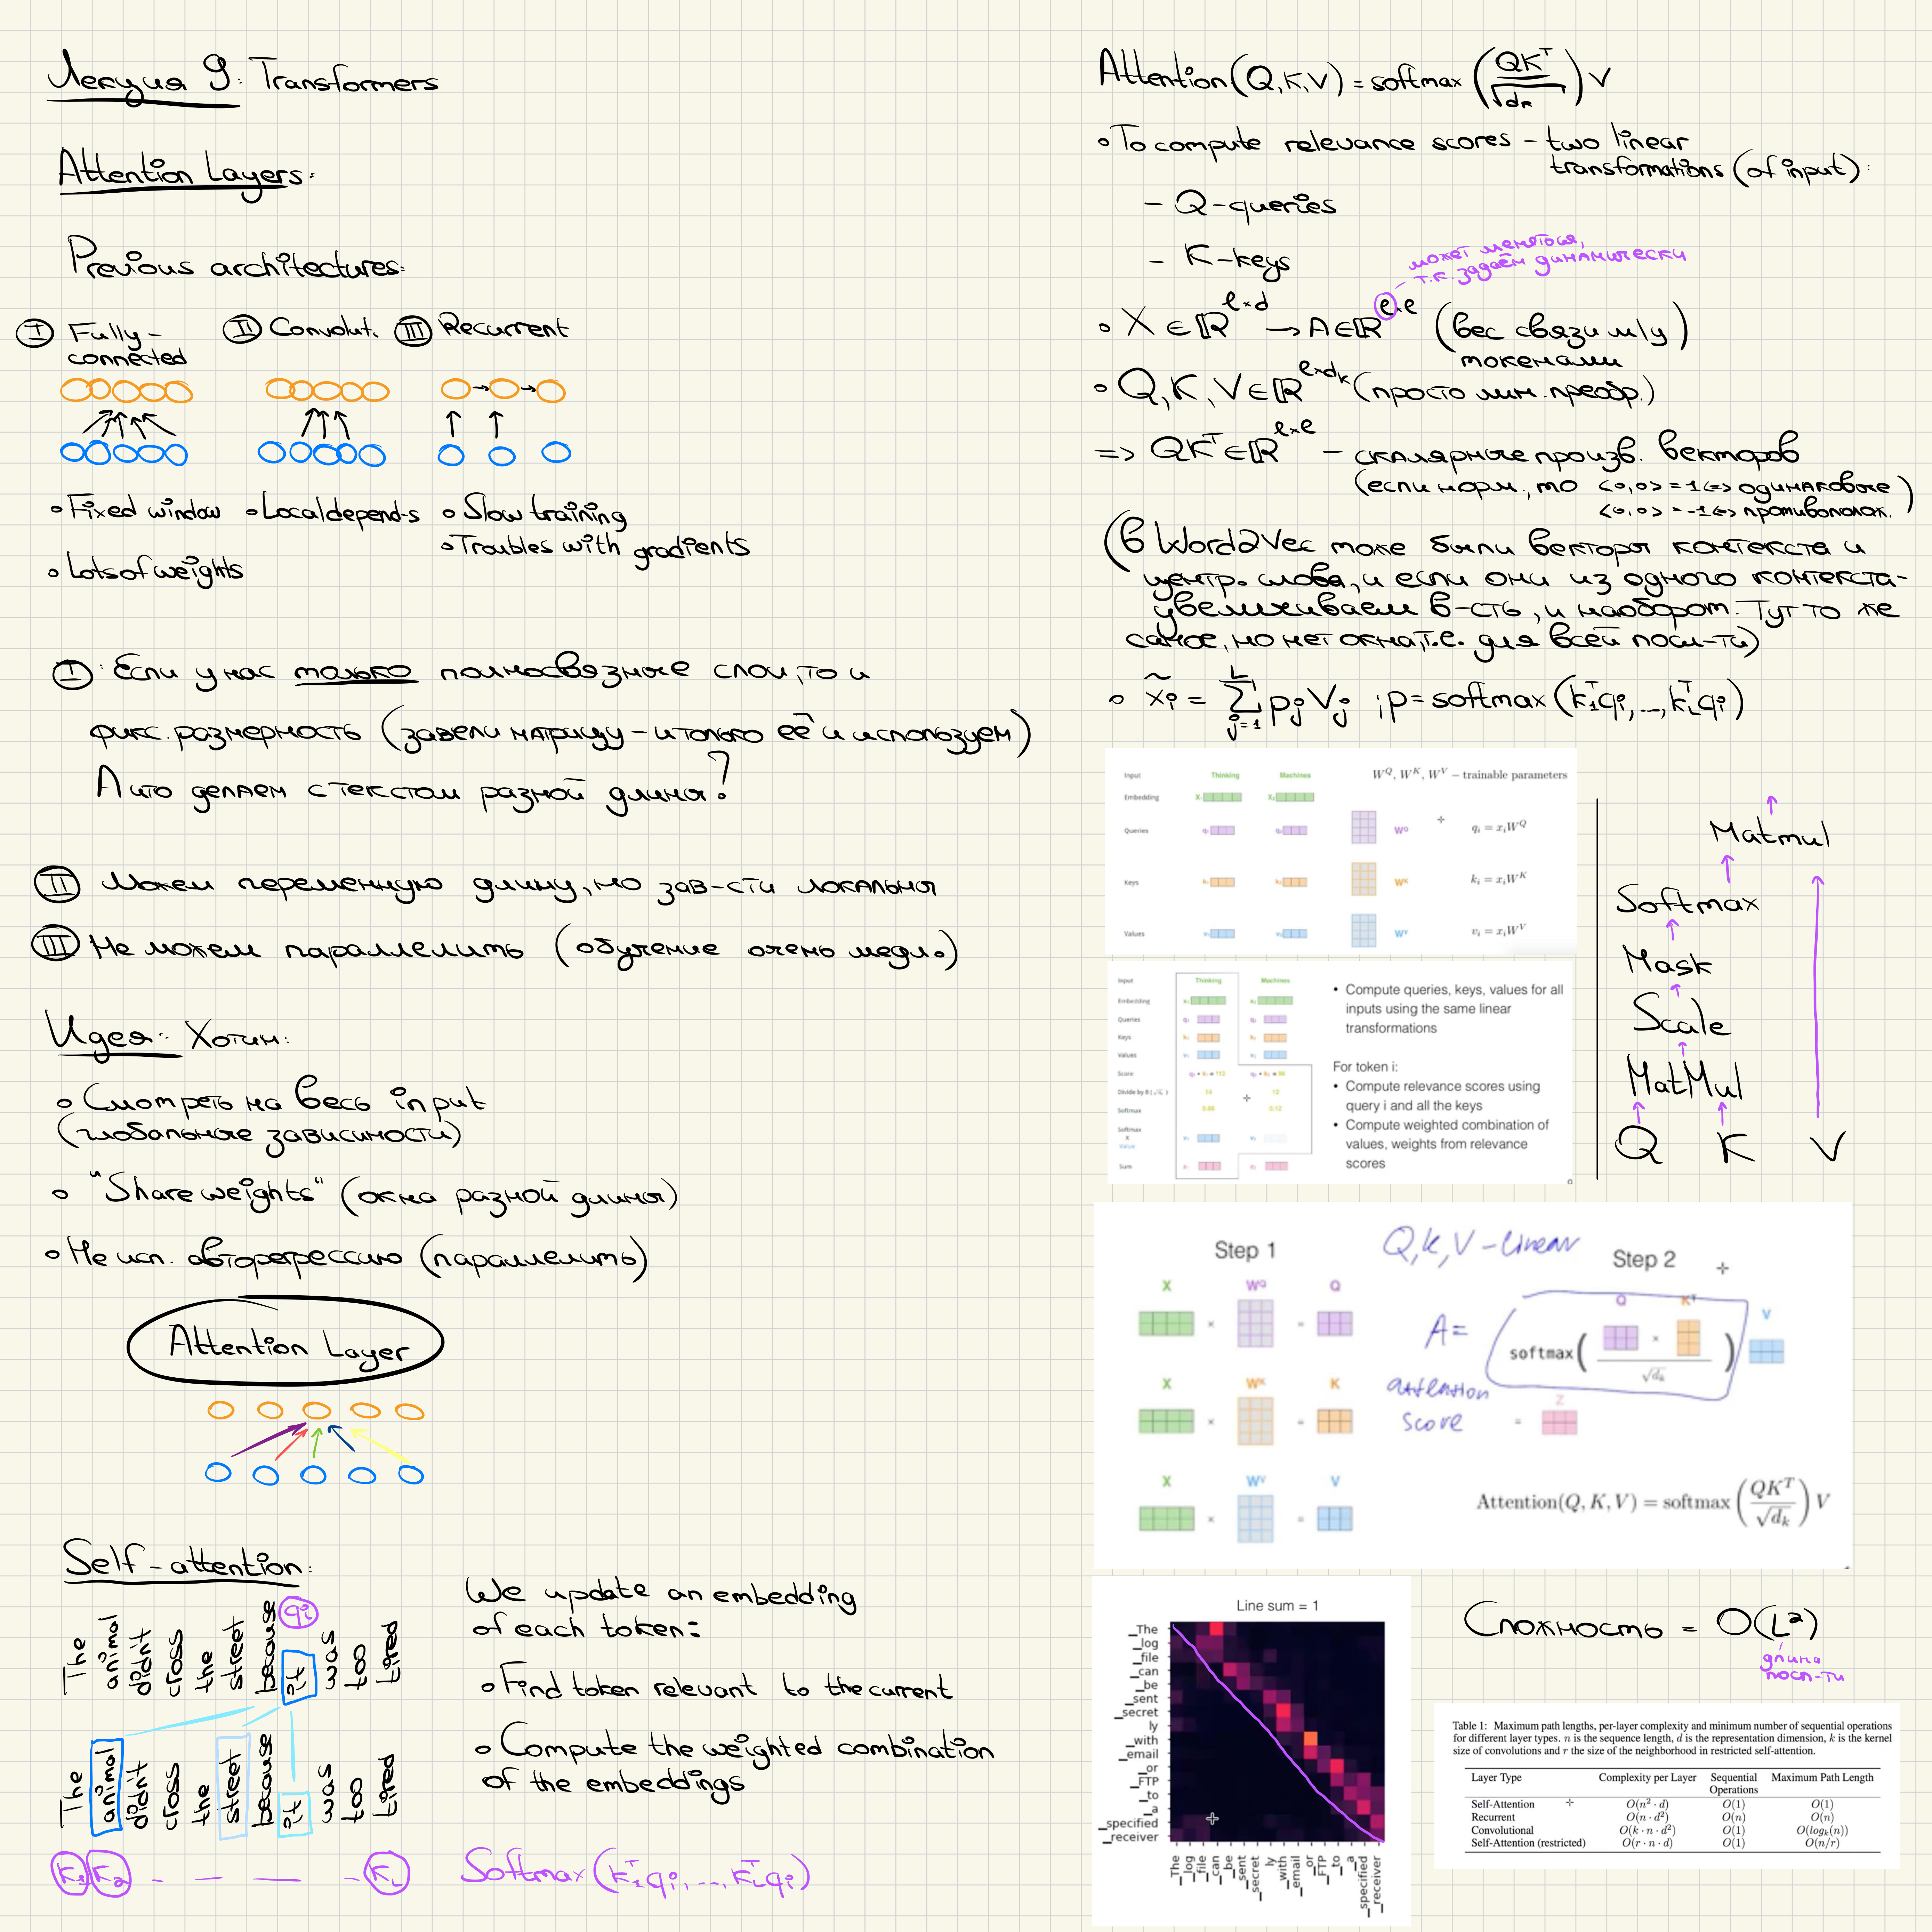 Лекция 9: Transformers
Attention Layers:
Previous architectures:
I Fully-connected
II Convolut.
III Recurrent
• Fixed window
• Lots of weights
• Local depend-s
• Slow training
• Troubles with gradients
I: Если у нас только полносвязные слои, то и
фикс. размерность (завели матрицу - и только её и используем)
А что делаем с текстом разной длины?
II Можем переменную длину, но зав-сти локальны
III Не можем параллелить (обучение очень медл.)
Идея: Хотим:
• Смотреть на весь input
(глобальные зависимости)
• "Share weights" (окна разной длины)
• Не исп. авторегрессию (параллелить)
Attention Layer
Self-attention:
qi
The animal didn't cross the street because it was too tired
The animal didn't cross the street because it was too tired
K1 K2 - - - - KL
Softmax(k1ᵀqi, ..., kLᵀqi)
We update an embedding
of each token:
• Find token relevant to the current
• Compute the weighted combination
of the embeddings
Attention(Q,K,V) = softmax(QKᵀ/√dk)V
• To compute relevance scores - two linear
transformations (of input):
- Q - queries
- K - keys
может меняться,
т.к. задаём динамически
• X ∈ ℝ^(l×d) → A ∈ ℝ^(l×l) (вес связи м/у
токенами)
• Q, K, V ∈ ℝ^(l×dk) (просто лин. преобр.)
=> QKᵀ ∈ ℝ^(l×l) - скалярные произв. векторов
(если норм., то <0,0> = 1 <=> одинаковые
<0,0> = -1 <=> противополож.)
(В Word2Vec тоже были векторы контекста и
центр. слова, и если они из одного контекста-
увеличиваем в-сть, и наоборот. Тут то же
самое, но нет окна, т.е. для всей посл-ти)
• x̃i = Σ_{j=1}^{L} pj Vj ; p = softmax(k1ᵀqi, ..., kLᵀqi)
Input Thinking Machines W^Q, W^K, W^V – trainable parameters
Embedding X₁ X₂
Queries q₁ q₂ W^Q q_i = x_i W^Q
Keys k₁ k₂ W^K k_i = x_i W^K
Values v₁ v₂ W^V v_i = x_i W^V
Input Thinking Machines
Embedding x₁ x₂
Queries q₁ q₂
Keys k₁ k₂
Values v₁ v₂
Score q₁ • k₁ = 112 q₁ • k₂ = 96
Divide by 8 (√d_k) 14 12
Softmax 0.88 0.12
Softmax
X
Value v₁ v₂
Sum z₁ z₂
• Compute queries, keys, values for all
inputs using the same linear
transformations
For token i:
• Compute relevance scores using
query i and all the keys
• Compute weighted combination of
values, weights from relevance
scores
Matmul
Softmax
Mask
Scale
MatMul
Q K V
Step 1
X × W^Q = Q
X × W^K = K
X × W^V = V
Q, K, V - linear
Step 2
A = softmax(Q × Kᵀ / √d_k) V
attention
score
= Z
Attention(Q, K, V) = softmax(QKᵀ/√d_k)V
Line sum = 1
_The
_log
_file
_can
_be
_sent
_secret
ly
_with
_email
_or
_FTP
_to
_a
_specified
_receiver
_The _log _file _can _be _sent _secret ly _with _email _or _FTP _to _a _specified _receiver
Сложность = O(L²)
длина
посл-ти
Table 1: Maximum path lengths, per-layer complexity and minimum number of sequential operations
for different layer types. n is the sequence length, d is the representation dimension, k is the kernel
size of convolutions and r the size of the neighborhood in restricted self-attention.
Layer Type Complexity per Layer Sequential Operations Maximum Path Length
Self-Attention O(n² · d) O(1) O(1)
Recurrent O(n · d²) O(n) O(n)
Convolutional O(k · n · d²) O(1) O(log_k(n))
Self-Attention (restricted) O(r · n · d) O(1) O(n/r)